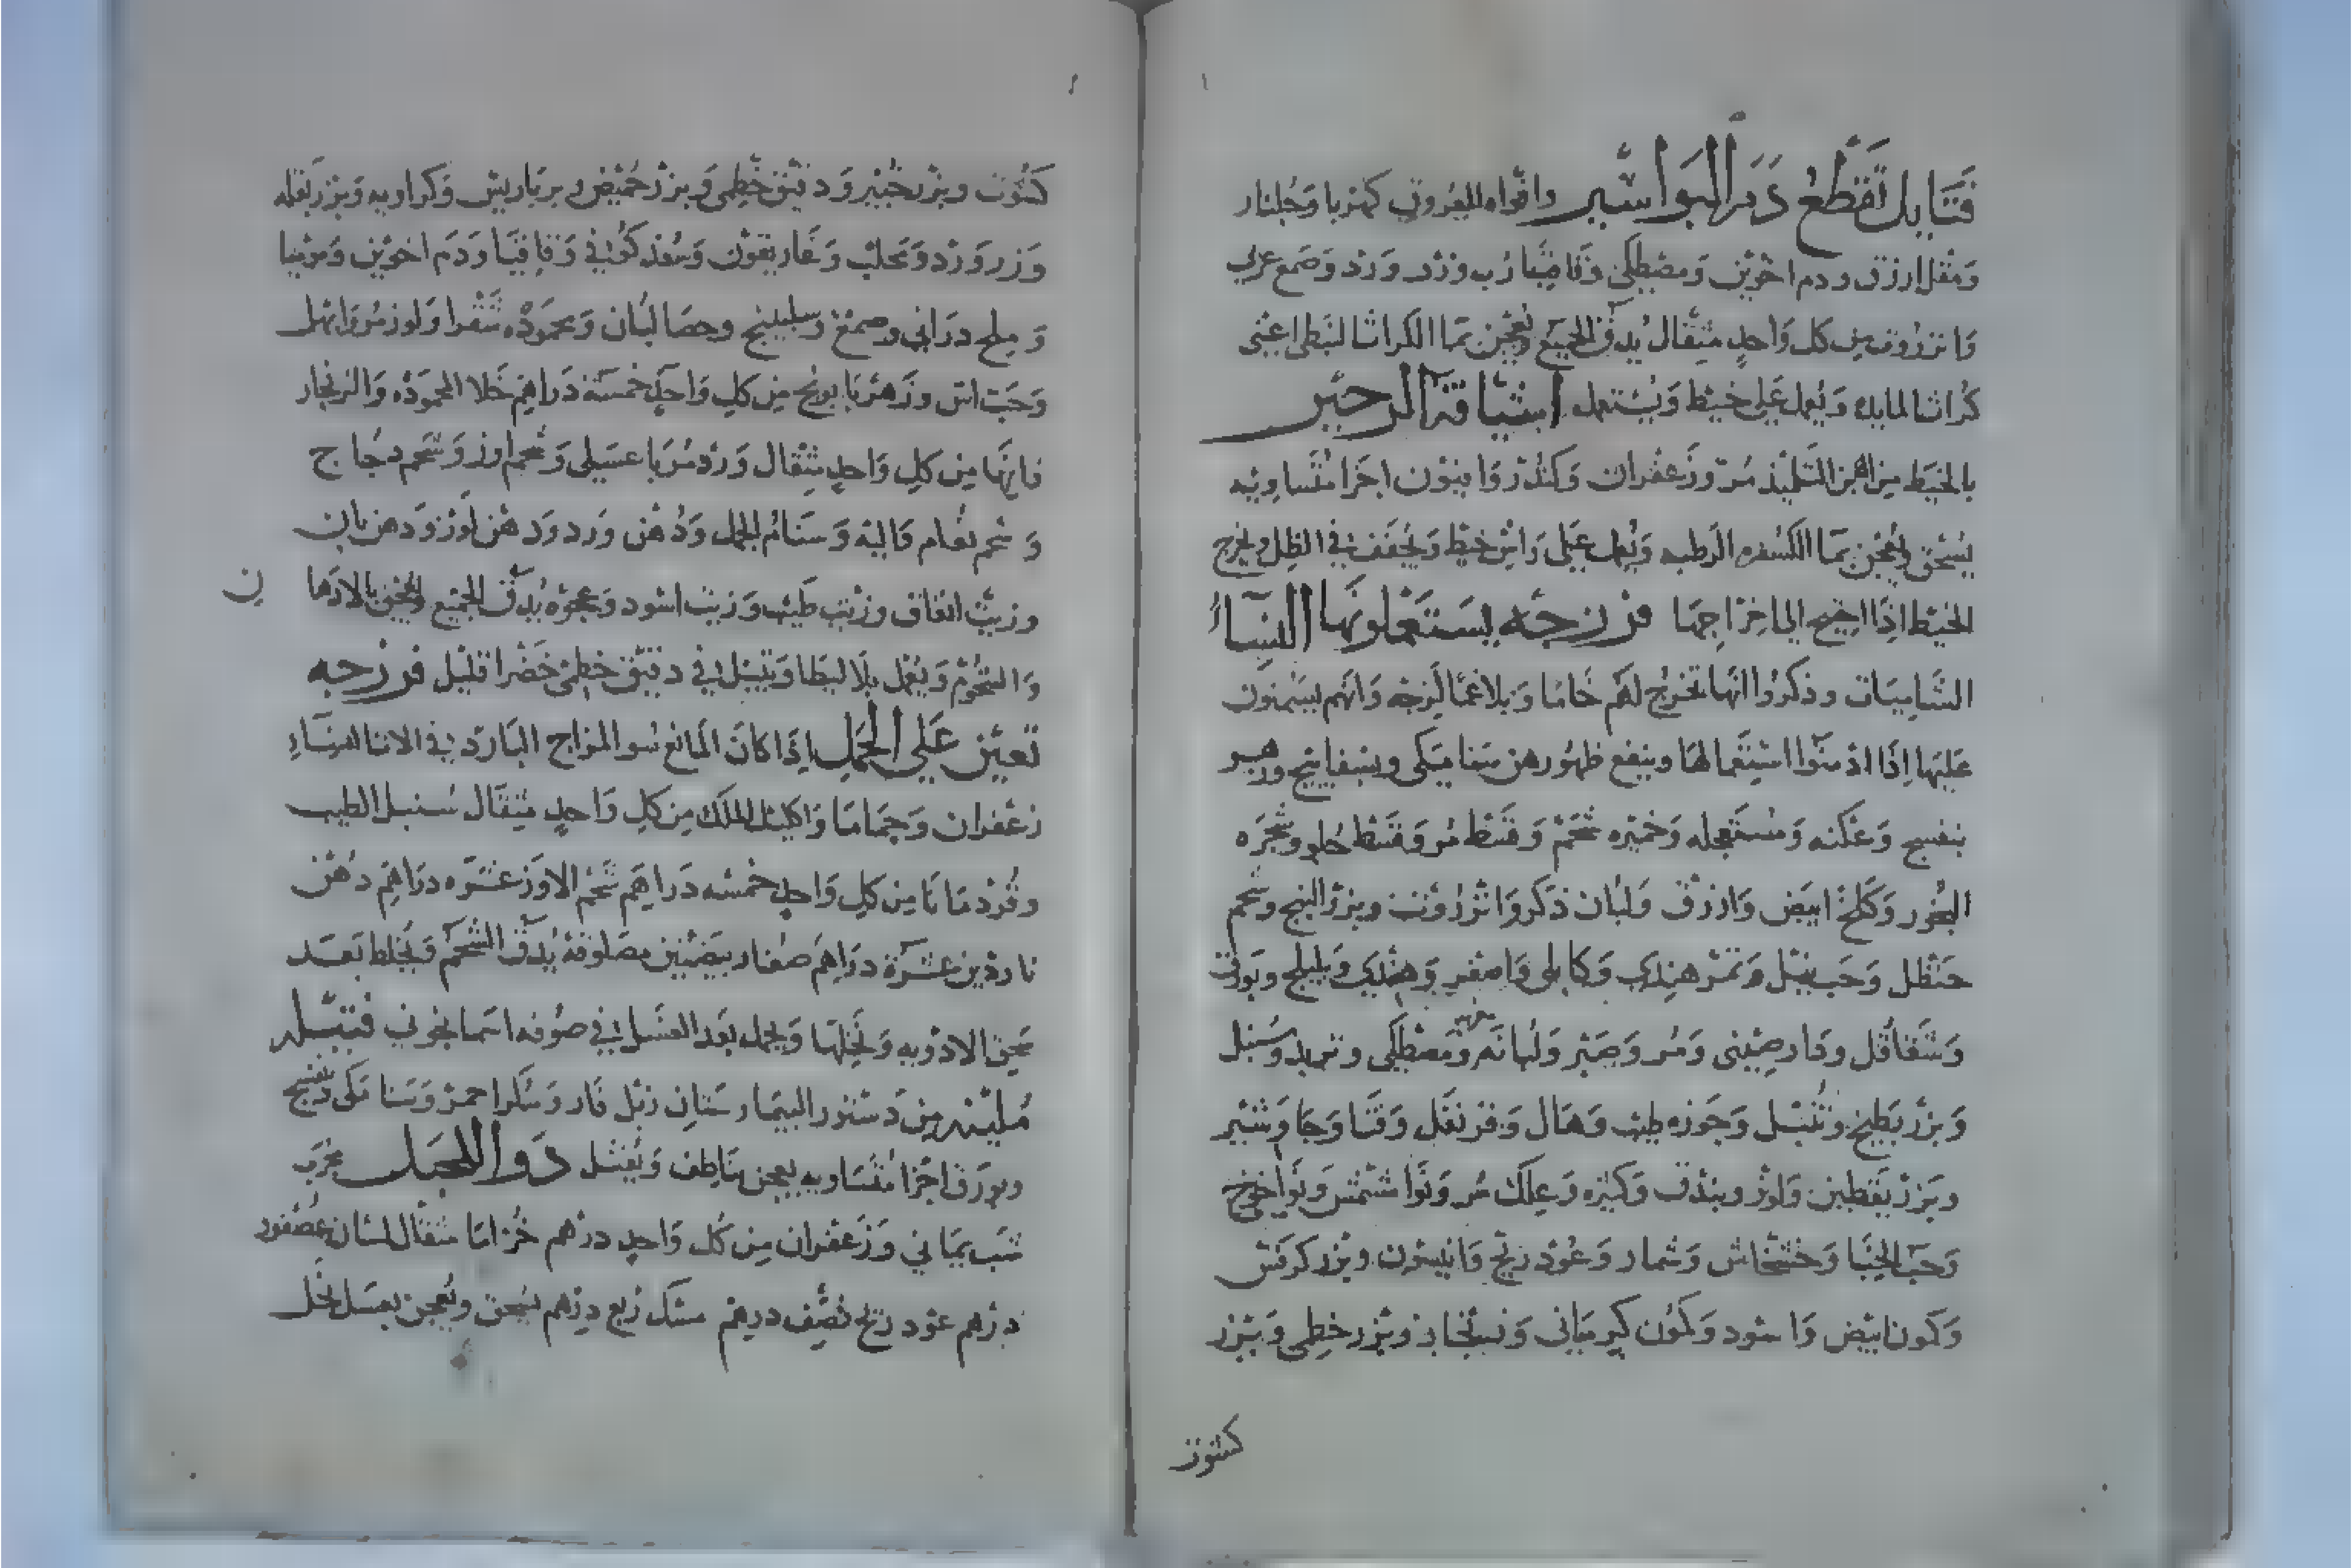 فَتَايل تَقطَعُ دَمَ البَوَاسِير وافواه العروق كهربا وَجُلنار
وَمُقل ارزق ودم اخوَين وَمصطكى وَقاقيا رُب وزر وَرد وَصمغ عربي
وَانزروت مِن كل وَاحدٍ مثقال يُدق الجميع وَيُعجن بمَا الكراث النبَطي اعني
كُراث المايده وَيُعمل عَلى خيط وَيُستعمل اشيافة الزحير
بالخيَط مُرّ وَزَعفران وَكندر وَافيون اجزا مُتسَاويه
يُسحق وَيُعجن بمَا الكسفره الرطبه وَيُعمل عَلى رَاس خيط وَيُجفف في الظل وَيخرج
الخيَط اذَا احتيج الى اخرَاجهَا فرزجه يستعملونها النسَاءُ
الشاميَات وذكروا انهَا تخرج لَهم خَامًا وَبلاغمًا لَزجه وَانهم يسمنون
عَليهَا اِذَا ادمنوا استعمَالهَا وينفع ظهورهن سَنا مَكى وبسفايج وزهر
بنفسج وَعَكنه وَمُستعجله وَخميره شحَم وَقسط مُر وَقسط حُلو وشجَرَه
البخور وَكلخ ابيَض وَازرق وَلبان ذكر وَانزرُوت وبزر البنج وشحم
حَنظل وَحَب نيل وَتمر هندي وَكابلى وَاصفر وَهندي وَبليلج وَبورق
وَشقاقل ودار صيني وَمُر وَصَبر وَلُبانه وَمصطكى وتربد وسُنبل
وَبزر بَطيخ وَتُنبل وَجَوزه طيب وَهَال وَقرنفل وَقنا وَجاوشير
وبَزر يَقطين وَلوز وبندق وَكثيره وَعلك مُر وَنَوا مشمش وَنوا خوخ
وَحبّ الحنا وَخشخاش وَشمار وَعُود ريح وَانيسون وبزر كرفس
وَكمون ابيَض وَاسود وَكمون كرماني وبزر خطمى وَبَزر
كشوت
كشوت وبزر وَدقيق خطمى وَبزر حُميض وبرباريس وَكراويه وَبزر بَقله
وَزر وَرد وَمحلب وَغاريقون وَسُعد كُوفي وَقاقيَا وَدَم اخوَين وَمُوميا
وَملح دَرَاني وصمغ وحصَا لبَان وَمحموُده شقرا وَلوز مُر وَابهل
وَحَب اس وزَهر بابونج مِن كل وَاحدٍ خمسَة دَراهم خَلا المحمودَه وَالزنجار
فانهَا مِن كل وَاحدٍ مثقال وَرد مُرَبا عسَلى وَشحم اوز وَشحم دجَاج
وَشحم نعَام وَسَنام الجمل وَدُهن وَرد وَدهن لوز وَدهن بان
وزيت انفاق وزيت طيب وَزبيب اسود وَعجوه يُدق الجميع وَيُعجن بالادهَا ن
وَالشحُوم وَيُعمل بلاليطا وَتبتل في دقيق خطمى خَضرا قليل فرزجه
تُعين عَلي الحَبَل اِذَا كانَ المانع سُو المزاج البَارد في الانَا النسَاء
زعفران وَحَمَامَا وَاكليل الملَك مِن كل وَاحدٍ مثقال سُنبل الطيب
وقُردمَانَا مِن كل وَاحدٍ خمسَه دَراهم شحم الاوَز عشرَه درَاهم دُهن
ناردين عشرَة دَرَاهم صفار بيَضتين مصلوقه يُدق الشحم وَيُخلط بَعد
سَحق الادويه وَنخلهَا وَيحمل بَعد الغسل في صُوفه اسمَانجوني فتيله
مُلينه مِن دَستور البيمَارستان زبل فار وَسُكر احمر وَسَنا مَكى وَبنفسج
وبورَق اجزا مُتسَاويه يعجن بنَاطف وَيُفتل دَوا للحَبل مجرب
شب يمَاني وَزعفران مِن كل وَاحدٍ درهم خُزامَا مثقال لسَان عُصفور
درهم عود ريح نصف درهم مسك رُبع درهم يُسحق ويُعجن بعسَل نحل